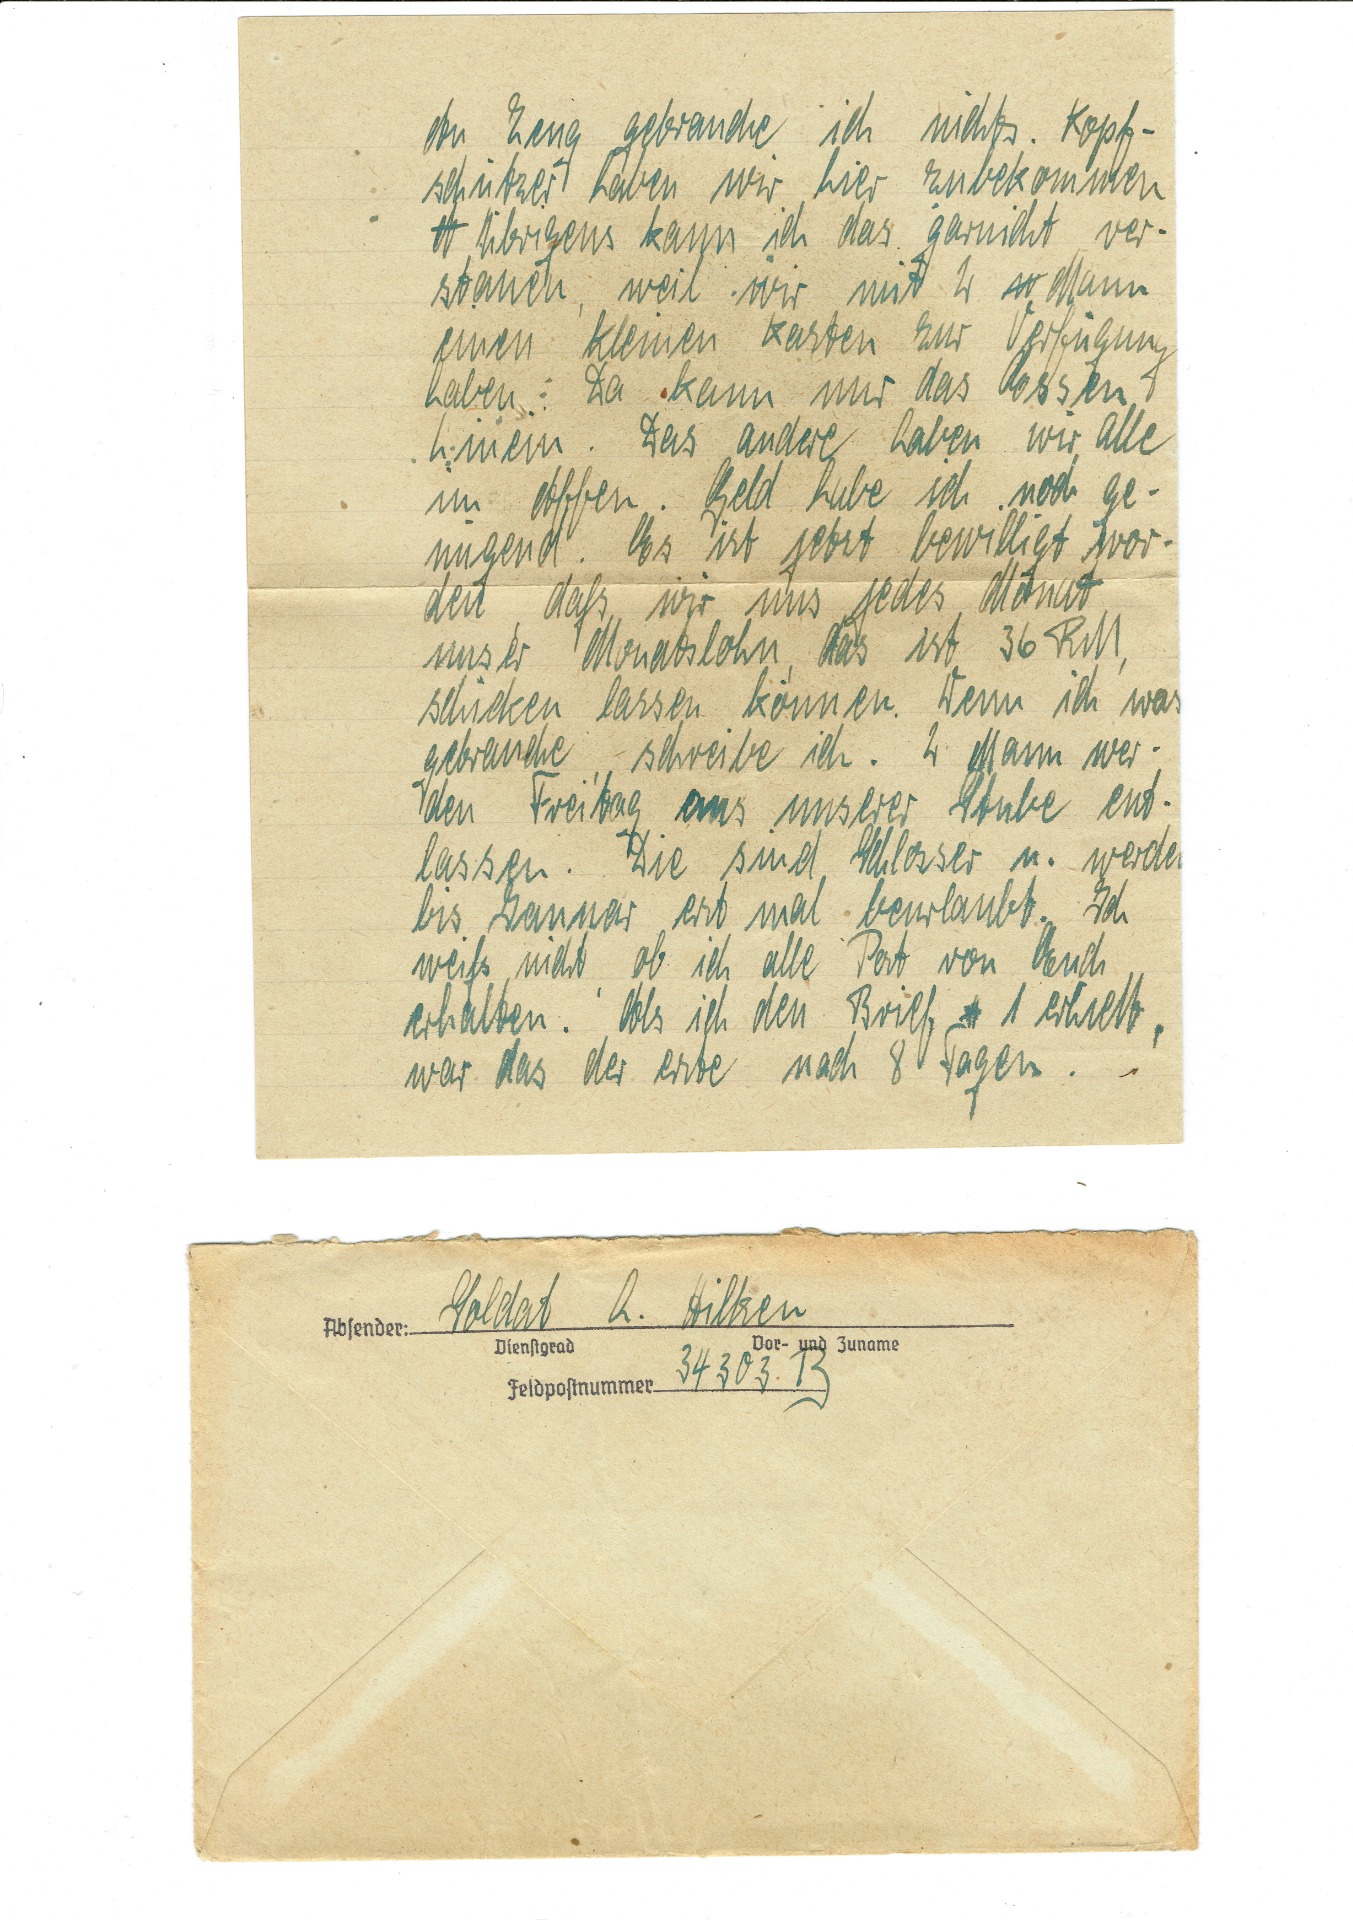 An Zeug gebrauche ich nichts. Kopf-
schützer haben wir hier zubekommen
Übrigens kann ich das garnicht ver-
stauen, weil wir mit 2 Mann
einen kleinen Kasten zur Verfügung
haben. Da kann nur das Essen
hinein. Das andere haben wir alle
im Offen. Geld habe ich noch ge-
nügend. Es ist jetzt bewilligt wor-
den, daß wir uns jedes Monat
unser Monatslohn, das ist 36 RM,
schicken lassen können. Wenn ich was
gebrauche, schreibe ich. 2 Mann wer-
den Freitag aus unserer Stube ent-
lassen. Die sind Schlosser u. werden
bis Januar erst mal beurlaubt. Ich
weiß nicht, ob ich alle Post von Euch
erhalten. Als ich den Brief 1 erhielt,
war das der erste nach 8 Tagen.
Absender: Soldat H. Hilken
Dienstgrad Vor- und Zuname
Feldpostnummer 34303.B